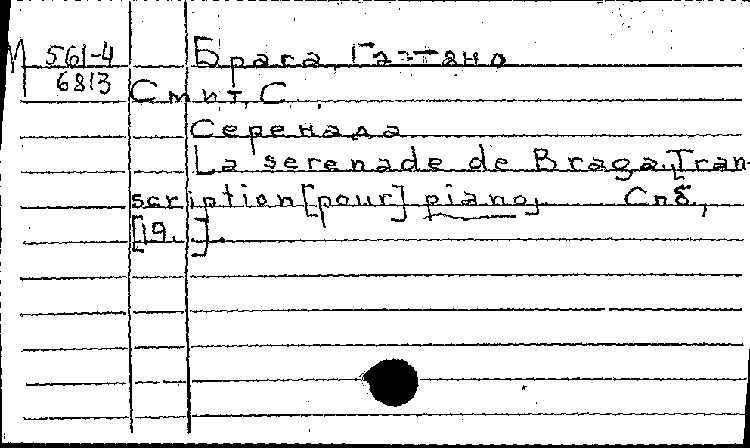 М 561-4 Брага, Гаэтано
6813 Смит, С.
Серенада
La serenade de Braga. Tran-
scription [pour] piano. Спб.,
[19. ].